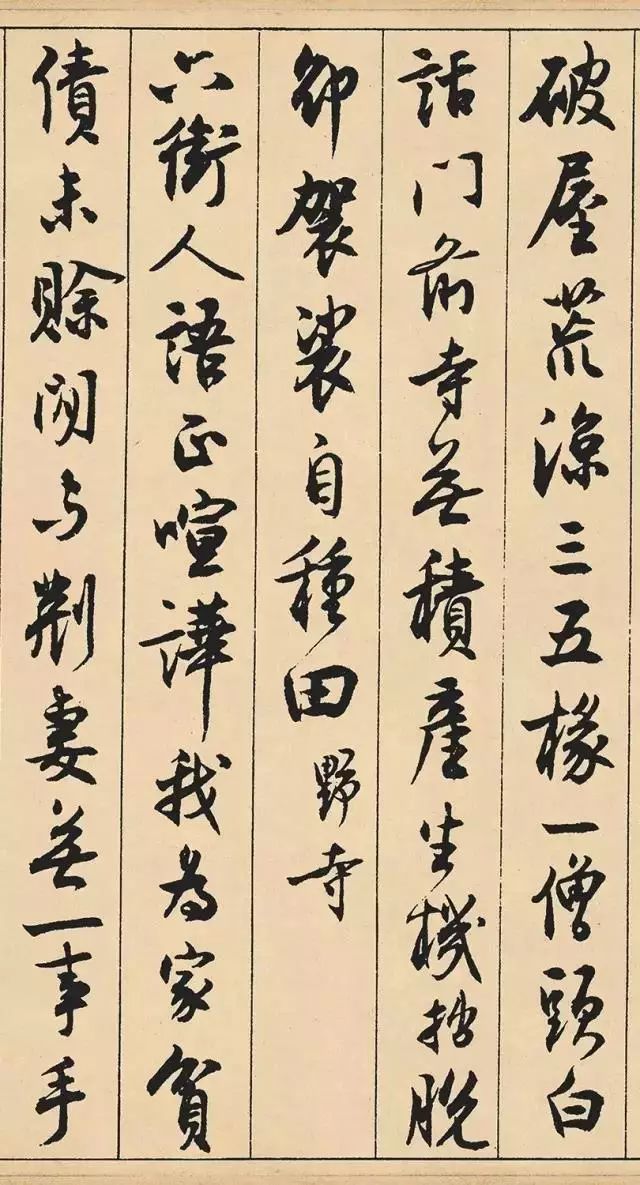 破屋荒涼三五椽一僧頭白
話門前寺無積產生機拙脫
卻袈裟自種田野寺
六街人語正喧譁我為家貧
債未賒閒与荆妻無一事手